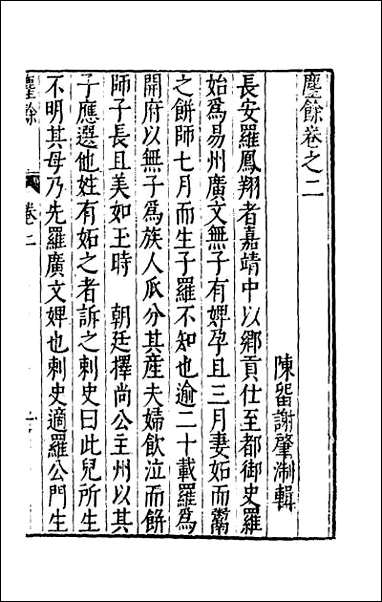 麈餘卷之二
陳留謝肇淛輯
長安羅鳳翔者嘉靖中以鄉貢仕至都御史羅
始爲易州廣文無子有婢孕且三月妻妬而鬻
之餅師七月而生子羅不知也逾二十載羅爲
開府以無子爲族人瓜分其產夫婦飲泣而餅
師子長且美如玉時　朝廷擇尚公主州以其
子應選他姓有妬之者訴之刺史曰此兒所生
不明其母乃先羅廣文婢也刺史適羅公門生
麈餘
卷二
一